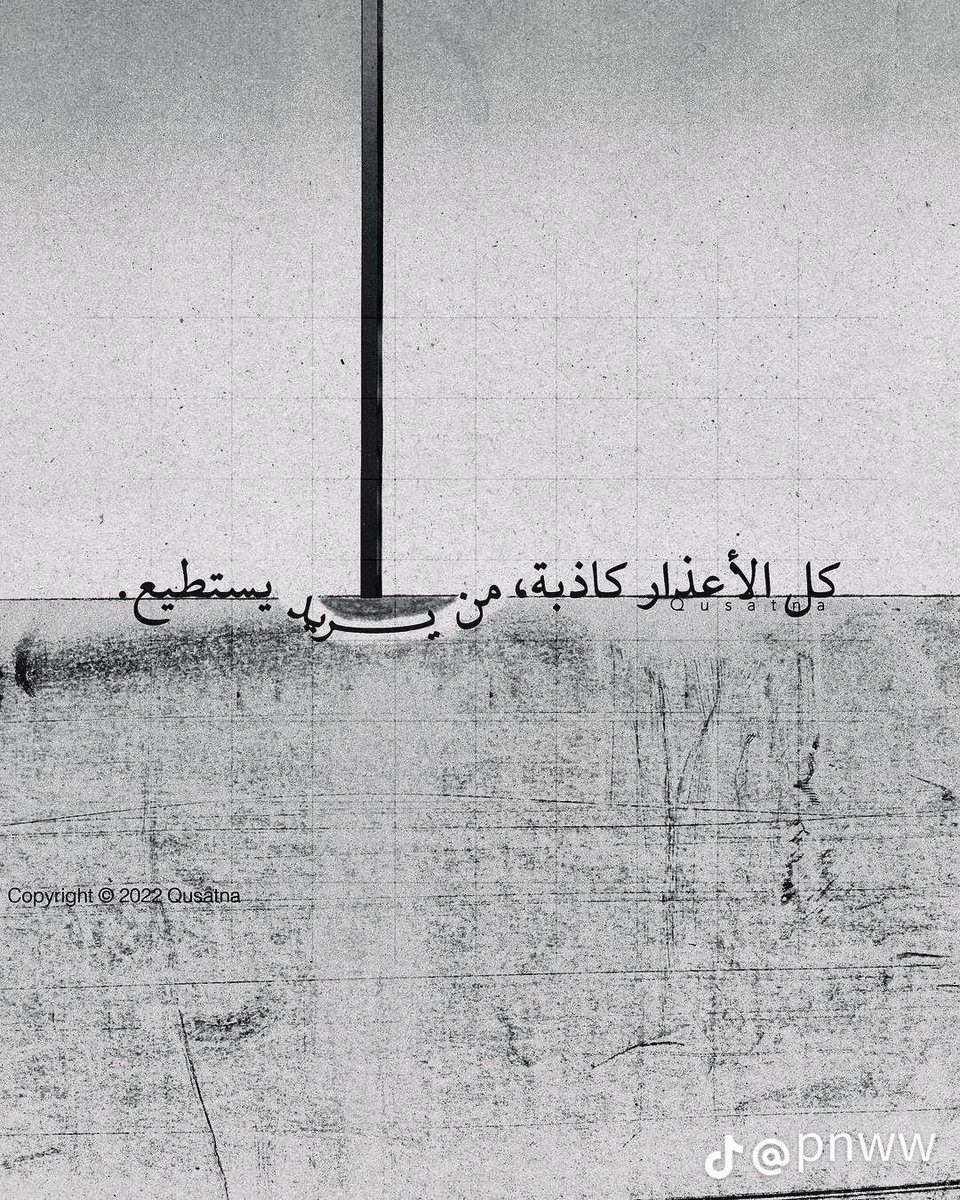 كل الأعذار كاذبة، من يريد يستطيع.
Qusatna
Copyright © 2022 Qusatna
@pnww